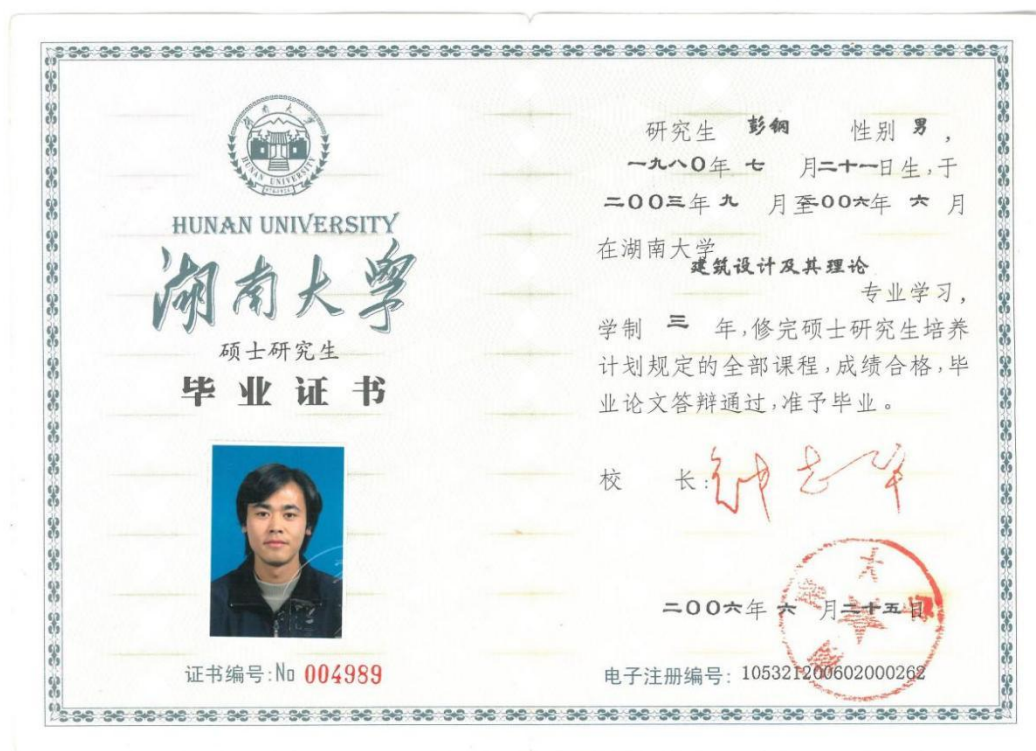 湖南大学
HUNAN UNIVERSITY
HUNAN UNIVERSITY
湖南大学
硕士研究生
毕业证书
证书编号:No 004989
研究生 彭钢 性别 男,
一九八〇年 七 月二十一日生,于
二〇〇三年 九 月至二〇〇六年 六 月
在湖南大学
建筑设计及其理论
专业学习,
学制 三 年,修完硕士研究生培养
计划规定的全部课程,成绩合格,毕
业论文答辩通过,准予毕业。
校 长:钟志华
二〇〇六年 六 月二十五日
电子注册编号: 105321200602000262